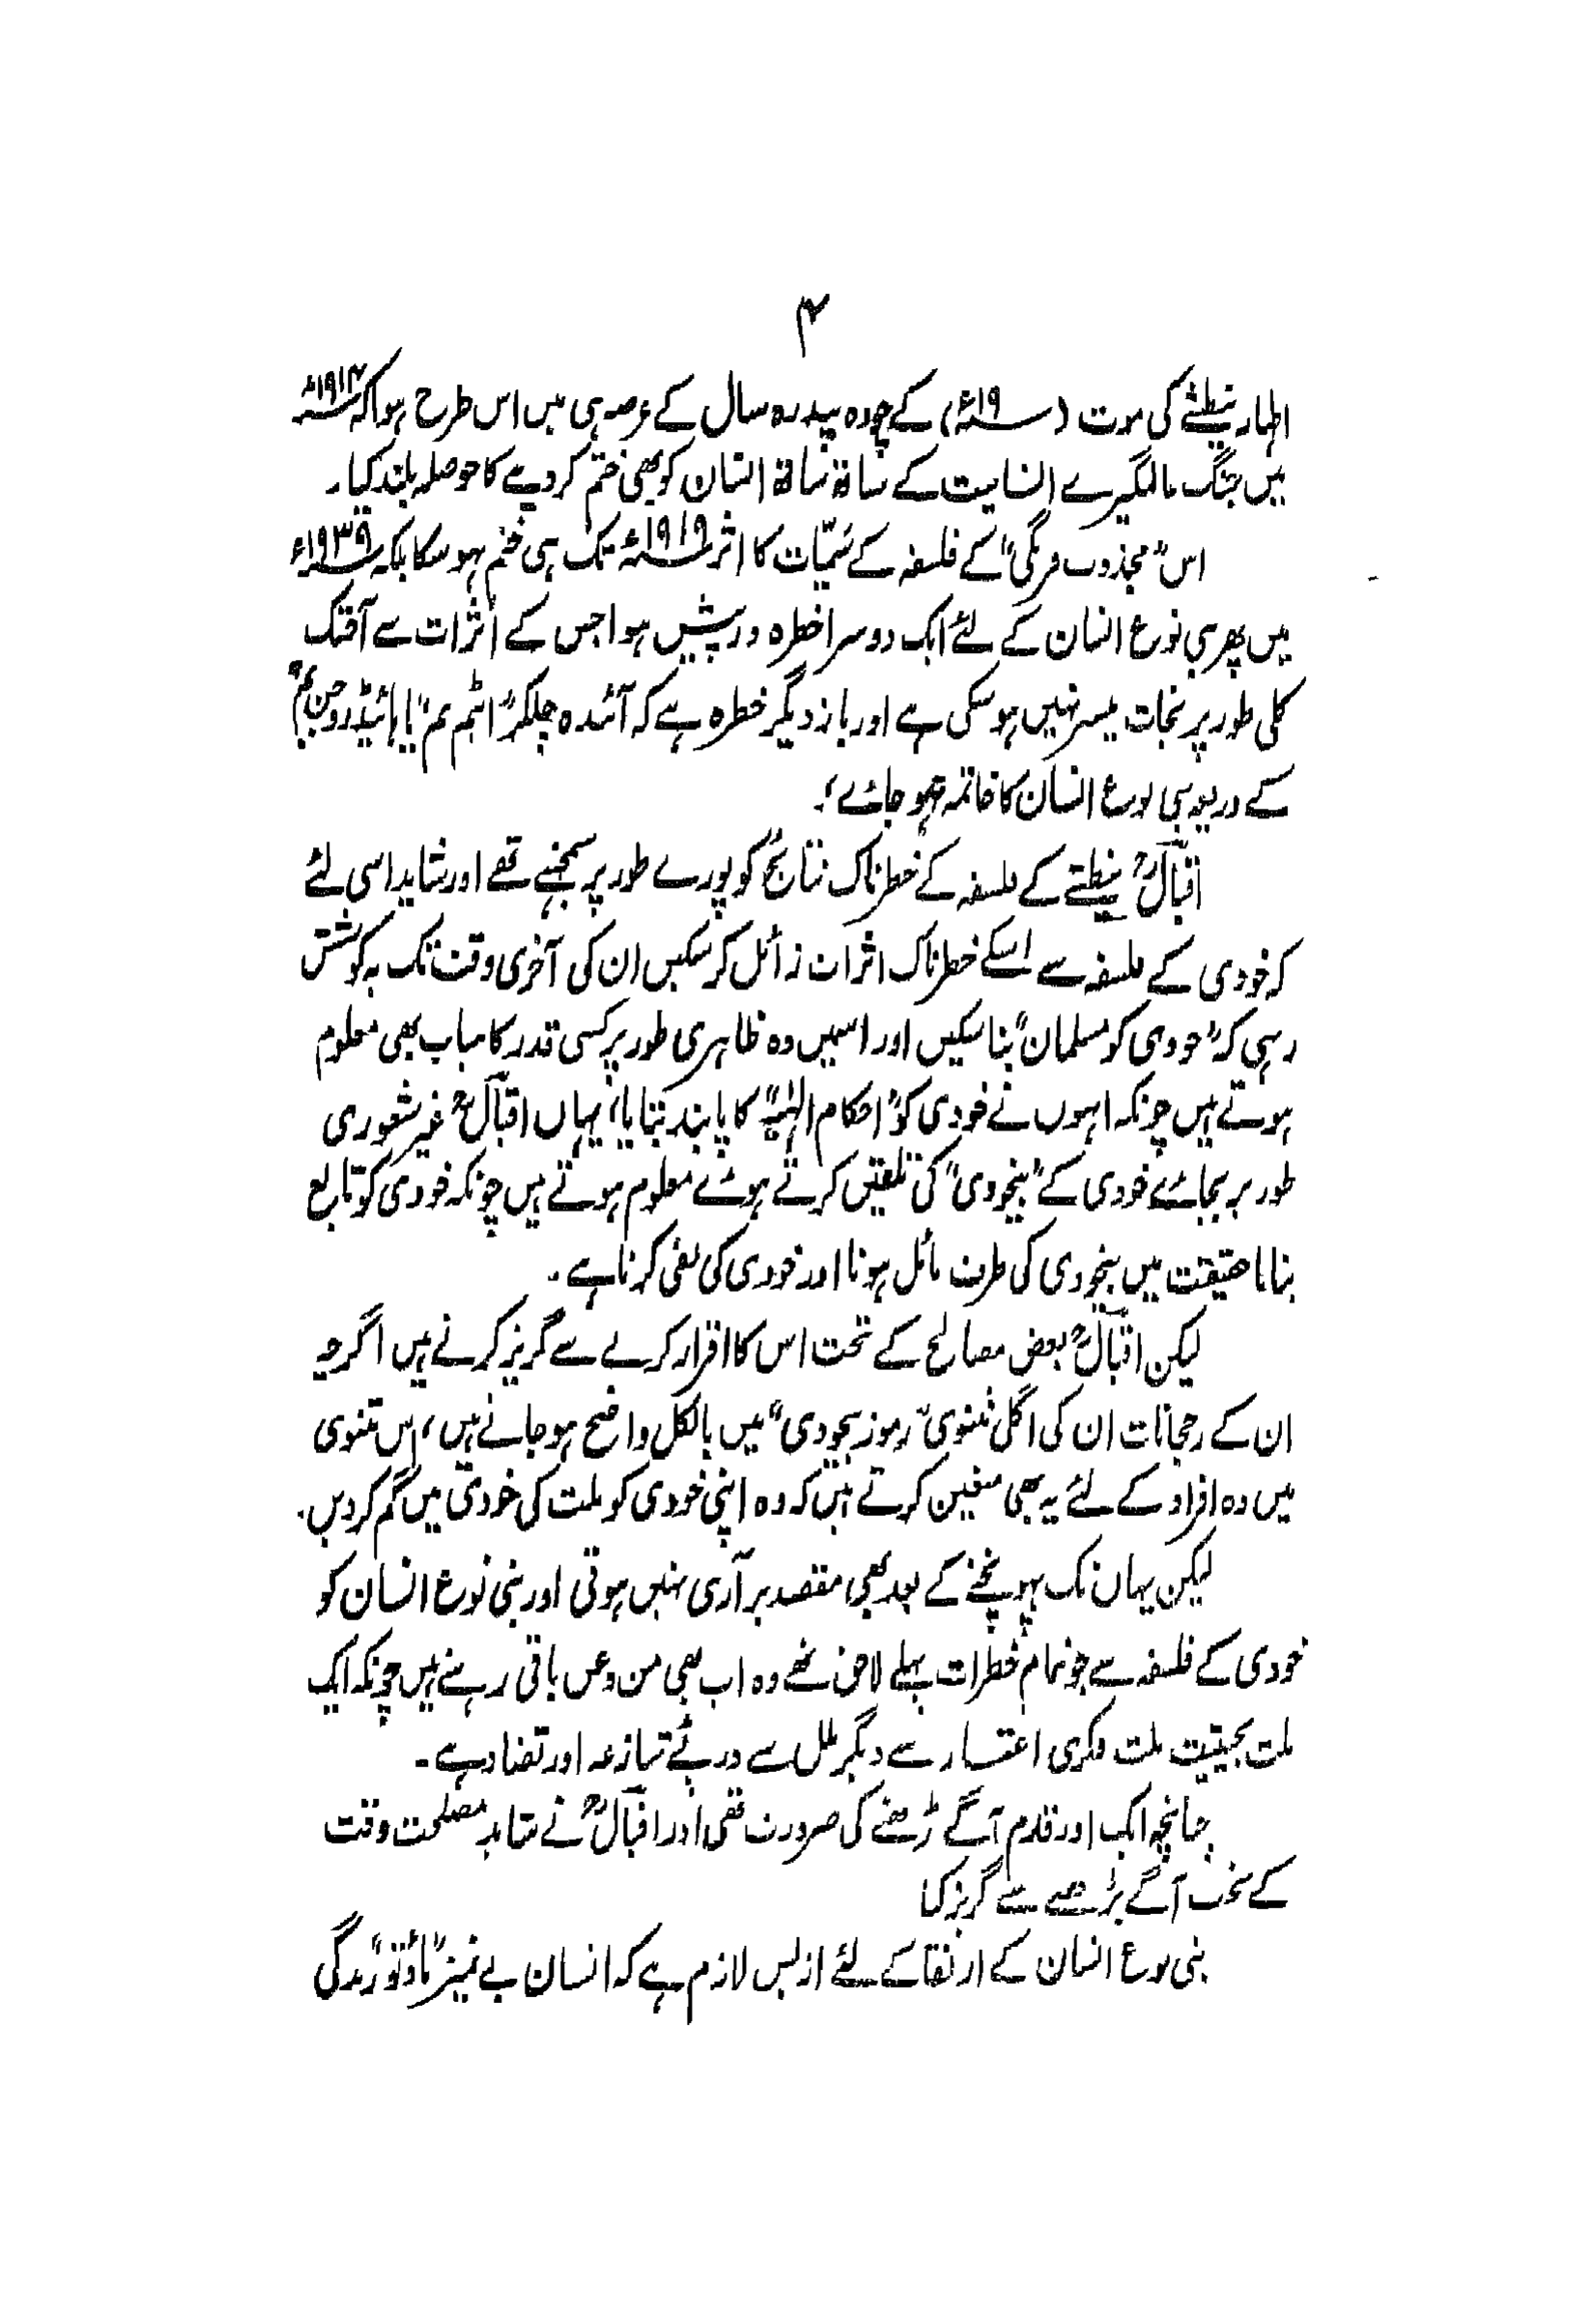 ۴
اظہار نیطشے کی موت (۱۹ء) کے چودہ پندرہ سال کے عرصہ ہی میں اس طرح ہوا کہ ۱۹۱۴ء
میں جنگ عالمگیر نے انسانیت کے ساتھ ساتھ انسان کو بھی ختم کر دینے کا حوصلہ بلند کیا۔
اس "مجذوب فرنگی" کے فلسفہ کے سمّیات کا اثر ۱۹۱۹ء تک ہی ختم ہو سکا بلکہ ۱۹۳۹ء
میں پھر بنی نوع انسان کے لئے ایک دوسرا خطرہ درپیش ہوا جس کے اثرات سے آج تک
کلی طور پر نجات میسر نہیں ہو سکی ہے اور باز دیگر خطرہ ہے کہ آئندہ چلکر "اٹم بم" یا "ہائیڈروجن بم"
کے ذریعہ بنی نوع انسان کا خاتمہ ہو جائے!
اقبالؒ نیطشے کے فلسفہ کے خطرناک نتائج کو پورے طور پر سمجھتے تھے اور شاید اسی لئے
کہ خودی کے فلسفہ سے اسکے خطرناک اثرات زائل کر سکیں ان کی آخری وقت تک یہ کوشش
رہی کہ "خودی کو مسلمان" بنا سکیں اور اسمیں وہ ظاہری طور پر کسی قدر کامیاب بھی معلوم
ہوتے ہیں چونکہ انہوں نے خودی کو "احکام الٰہیہ" کا پابند بنایا، یہاں اقبالؒ غیر شعوری
طور پر بجائے خودی کے "بیخودی" کی تلقین کرتے ہوئے معلوم ہوتے ہیں چونکہ خودی کو تابع
بنانا حقیقت میں بیخودی کی طرف مائل ہونا اور خودی کی نفی کرنا ہے۔
لیکن اقبالؒ بعض مصالح کے تحت اس کا اقرار کرنے سے گریز کرتے ہیں اگرچہ
ان کے رجحانات ان کی اگلی مثنوی "رموز بیخودی" میں بالکل واضح ہو جاتے ہیں، اس مثنوی
میں وہ افراد کے لئے یہ بھی متعین کرتے ہیں کہ وہ اپنی خودی کو ملت کی خودی میں گم کر دیں۔
لیکن یہاں تک پہونچنے کے بعد بھی مقصد برآری نہیں ہوتی اور بنی نوع انسان کو
خودی کے فلسفہ سے جو تمام خطرات پہلے لاحق تھے وہ اب بھی من وعن باقی رہتے ہیں چونکہ ایک
ملت بحیثیت ملت فکری اعتبار سے دیگر ملل سے درپئے تنازعہ اور تضاد ہے۔
چنانچہ ایک اور قدم آگے بڑھنے کی ضرورت تھی اور اقبالؒ نے شاید مصلحت وقت
کے تحت آگے بڑھنے سے گریز کیا
بنی نوع انسان کے ارتقا کے لئے ازبس لازم ہے کہ انسان بے تمیز "ما و تو" زندگی